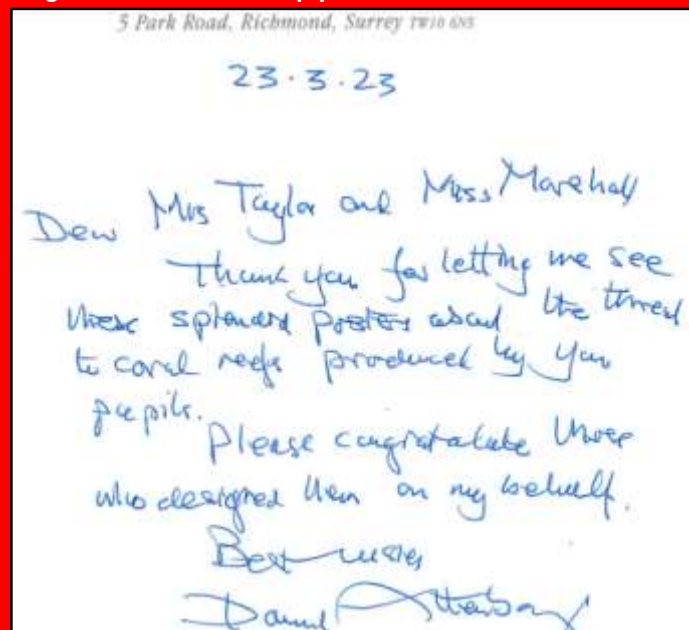 5 Park Road, Richmond, Surrey TW10 6NS
23.3.23
Dear Mrs Taylor and Miss Marshall
Thank you for letting me see
these splendid posters about the threat
to coral reefs produced by your
pupils.
Please congratulate those
who designed them on my behalf.
Best wishes
David Attenborough